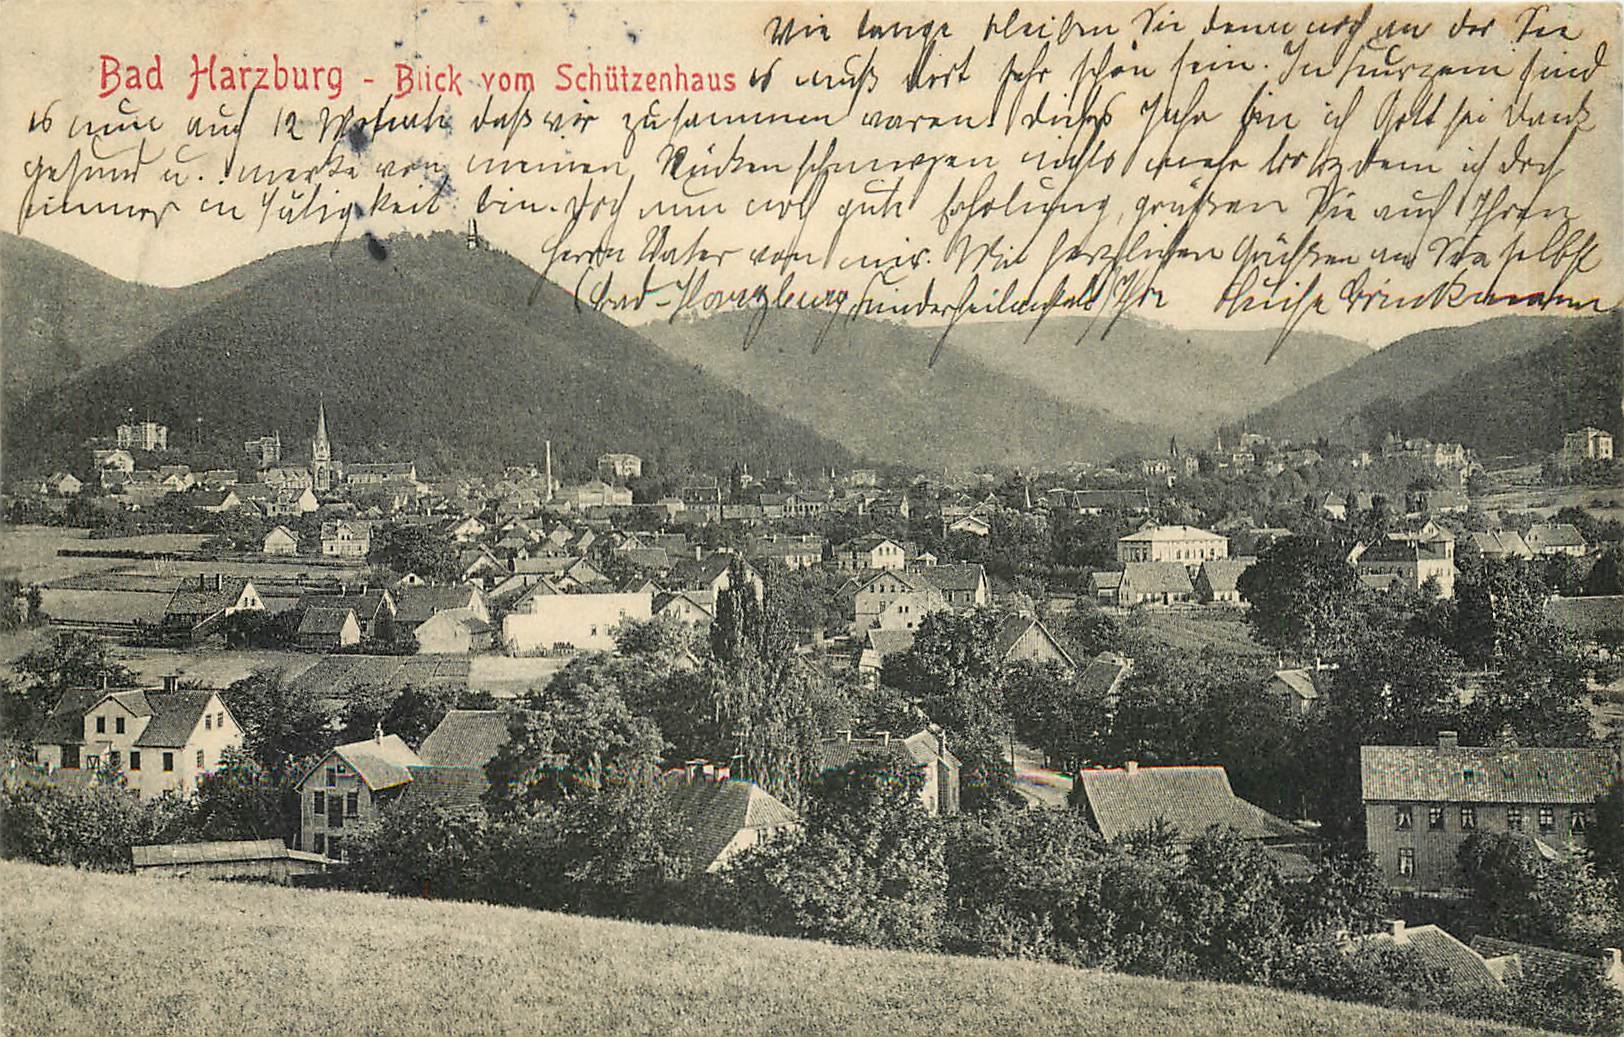 Wie lange bleiben Sie denn noch an der See
Bad Harzburg - Blick vom Schützenhaus
es muß dort sehr schön sein. In kurzem sind
es nun auch 12 daß wir zusammen waren. dieses Jahr bin ich Gott sei Dank
gesund u. merke von meinen Rückenschmerzen nichts mehr trotzdem ich doch
immer in Tätigkeit bin. Doch nun noch gute Erholung, grüßen Sie auch Ihren
Herrn Vater von mir. Mit herzlichen Grüßen an Sie selbst
(Bad-Harzburg Kinderheilanstalt) Ihre Brinkmann